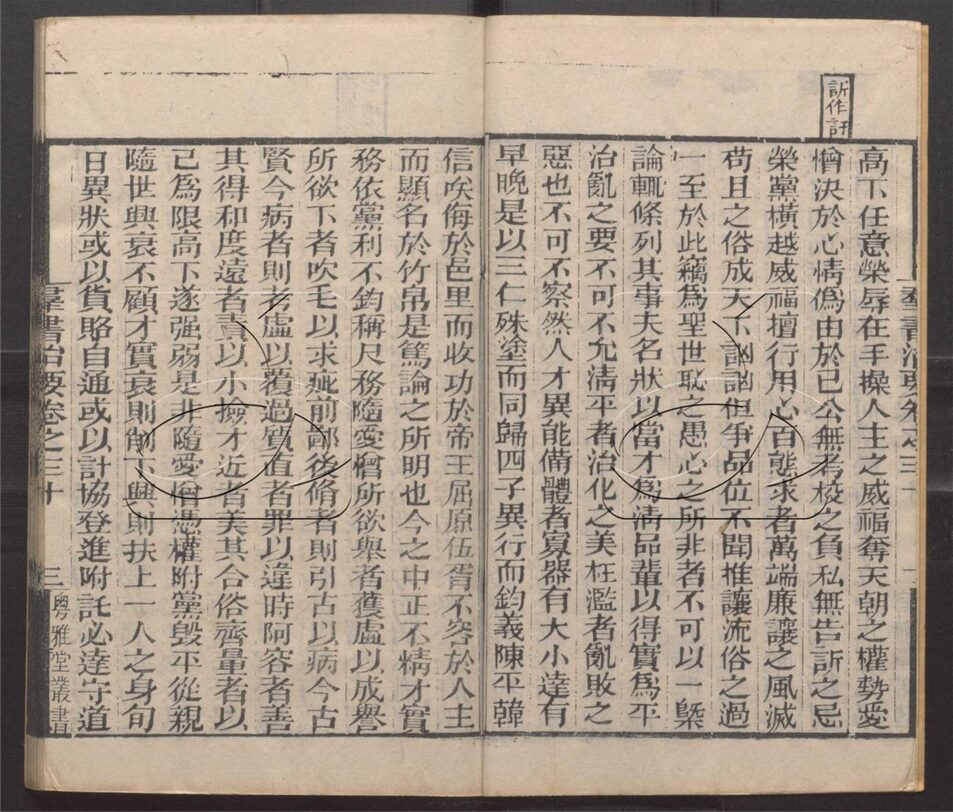 訴作訐
高下任意榮辱在手操人主之威福奪天朝之權勢愛
憎決於心情偽由於己公無考校之負私無告訴之忌
榮黨橫越威福擅行用心百態求者萬端廉讓之風滅
苟且之俗成天下訩訩但爭品位不聞推讓流俗之過
一至於此竊為聖世恥之愚心之所非者不可以一槩
論輒條列其事夫名狀以當才為清品輩以得實為平
治亂之要不可不允清平者治化之美枉濫者亂敗之
惡也不可不察然人才異能備體者寡器有大小達有
早晚是以三仁殊塗而同歸四子異行而鈞義陳平韓
羣書治要卷之三十
信笑侮於邑里而收功於帝王屈原伍胥不容於人主
而顯名於竹帛是篤論之所明也今之中正不精才實
務依黨利不鈞稱尺務隨愛憎所欲舉者獲虛以成譽
所欲下者吹毛以求疵前鄙後脩者則引古以病今古
賢今病者則考虛以覆過質直者罪以違時阿容者善
其得和度遠者責以小撿才近者美其合俗齊量者以
己為限高下遂强弱是非隨愛憎憑權附黨毀平從親
隨世興衰不顧才實衰則削下興則扶上一人之身旬
日異狀或以貨賂自通或以計協登進附託必達守道
羣書治要卷之三十
三
粤雅堂叢書